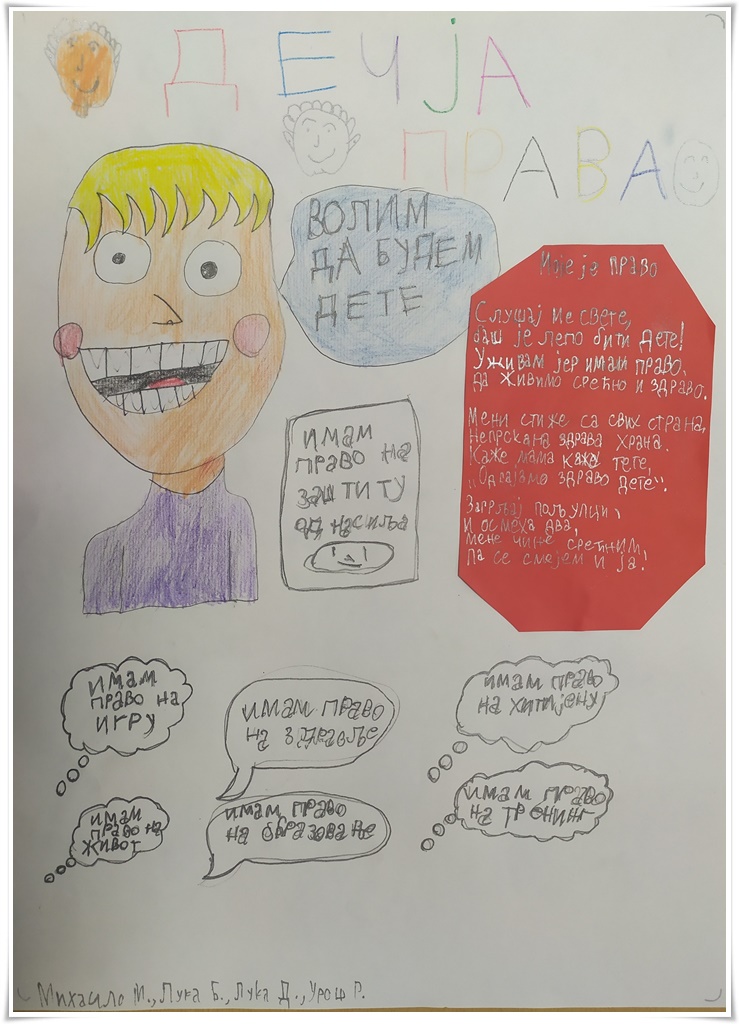 ДЕЧЈА
ПРАВА
ВОЛИМ
ДА БУДЕМ
ДЕТЕ
Моје је право
Слушај ме свете,
баш је лепо бити дете!
Уживам јер имам право,
да живимо срећно и здраво.
Мени стиже са свих страна,
непрскана здрава храна.
Каже мама кажу тете,
„Одгајамо здраво дете".
Загрљај пољупци
и осмеха два,
мене чине срећним,
па се смејем и ја!
имам
право на
заштиту
од насиља
имам
право на
игру
имам право
на здравље
имам право
на хигијену
имам
право на
живот
имам право
на образовање
имам право
на тренинг
Михаило М., Лука Б., Лука Д., Урош Р.